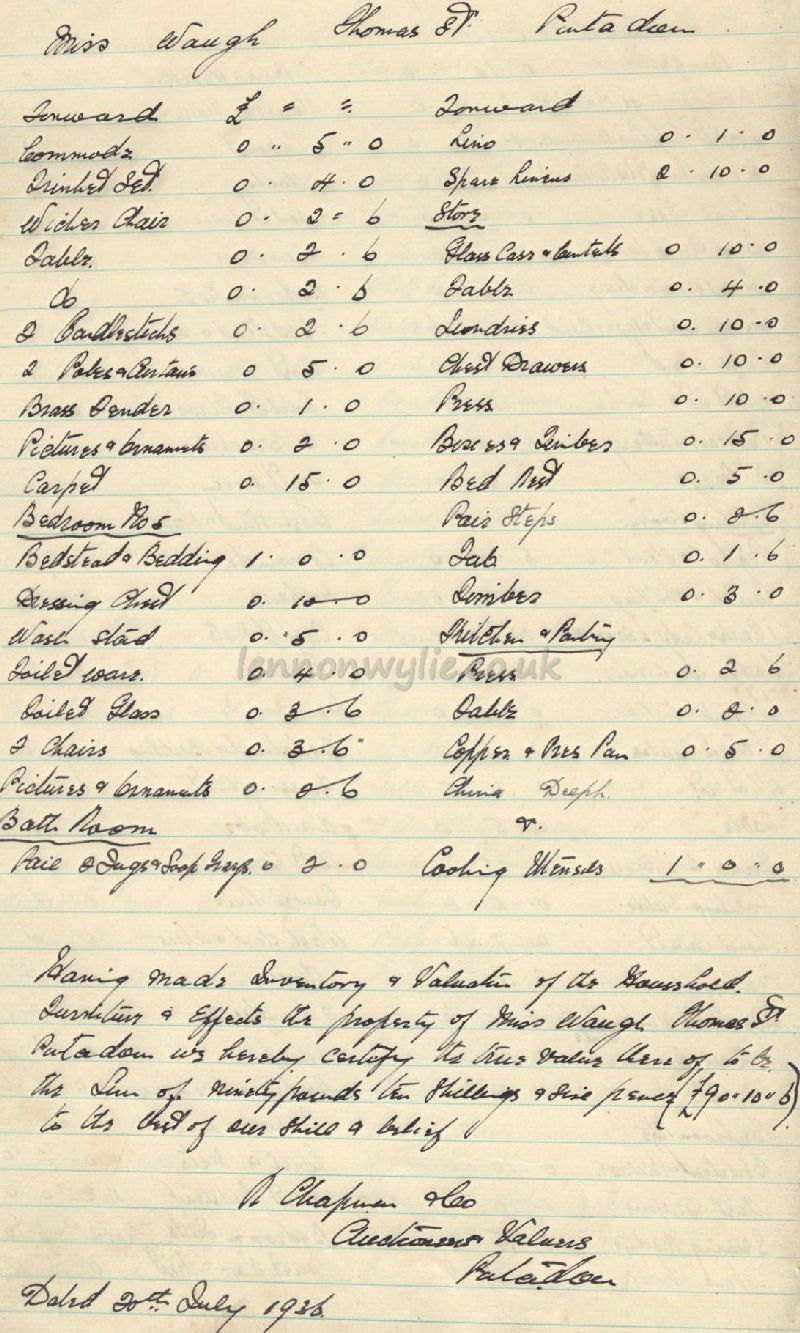 Miss Waugh Thomas St. Portadown
Forward £ " "
Commode 0 " 5 " 0
Trinket Set 0 . 4 . 0
Wicker Chair 0 . 2 = 6
Table 0 . 2 . 6
Do 0 . 2 . 6
2 Candlesticks 0 . 2 . 6
2 Poles & Curtains 0 5 . 0
Brass Fender 0 . 1 . 0
Pictures & Ornaments 0 . 2 . 0
Carpet 0 . 15 . 0
Bedroom No 5
Bedstead & Bedding 1 . 0 . 0
Dressing Chest 0 . 10 - 0
Wash Stad 0 . 5 . 0
Toilet ware. 0 . 4 . 0
Toilet Glass 0 . 3 - 6
2 Chairs 0 . 3 . 6
Pictures & Ornaments 0 . 2 . 6
Bath Room
Pail 2 Jugs & Soap Trays. 0 2 . 0
Forward
Lino 0 . 1 . 0
Spare Linens 2 . 10 . 0
Store
Glass Case & Contents 0 10 . 0
Table 0 . 4 . 0
Sundries 0 . 10 - 0
Chest Drawers 0 . 10 . 0
Press 0 . 10 . 0
Boxes & Timber 0 . 15 . 0
Bed Rest 0 . 5 . 0
Pair Steps 0 . 2 . 6
Tub 0 . 1 . 6
Timber 0 . 3 . 0
Kitchen & Pantry
Press 0 . 2 6
Table 0 . 2 . 0
Copper & Pres Pan 0 . 5 . 0
China Delph.
&.
Cooking Utensils 1 " 0 " 0
lennonwylie.co.uk
Having made Inventory & Valuation of the Household.
Furniture & Effects the property of Miss Waugh Thomas St.
Portadown we hereby certify the true value there of to be
the Sum of ninety pounds ten shillings & six pence (£90 " 10 " 6)
to the best of our skill & belief
R Chapman & Co
Auctioneers Valuers
Portadown
Dated 20th July 1936.